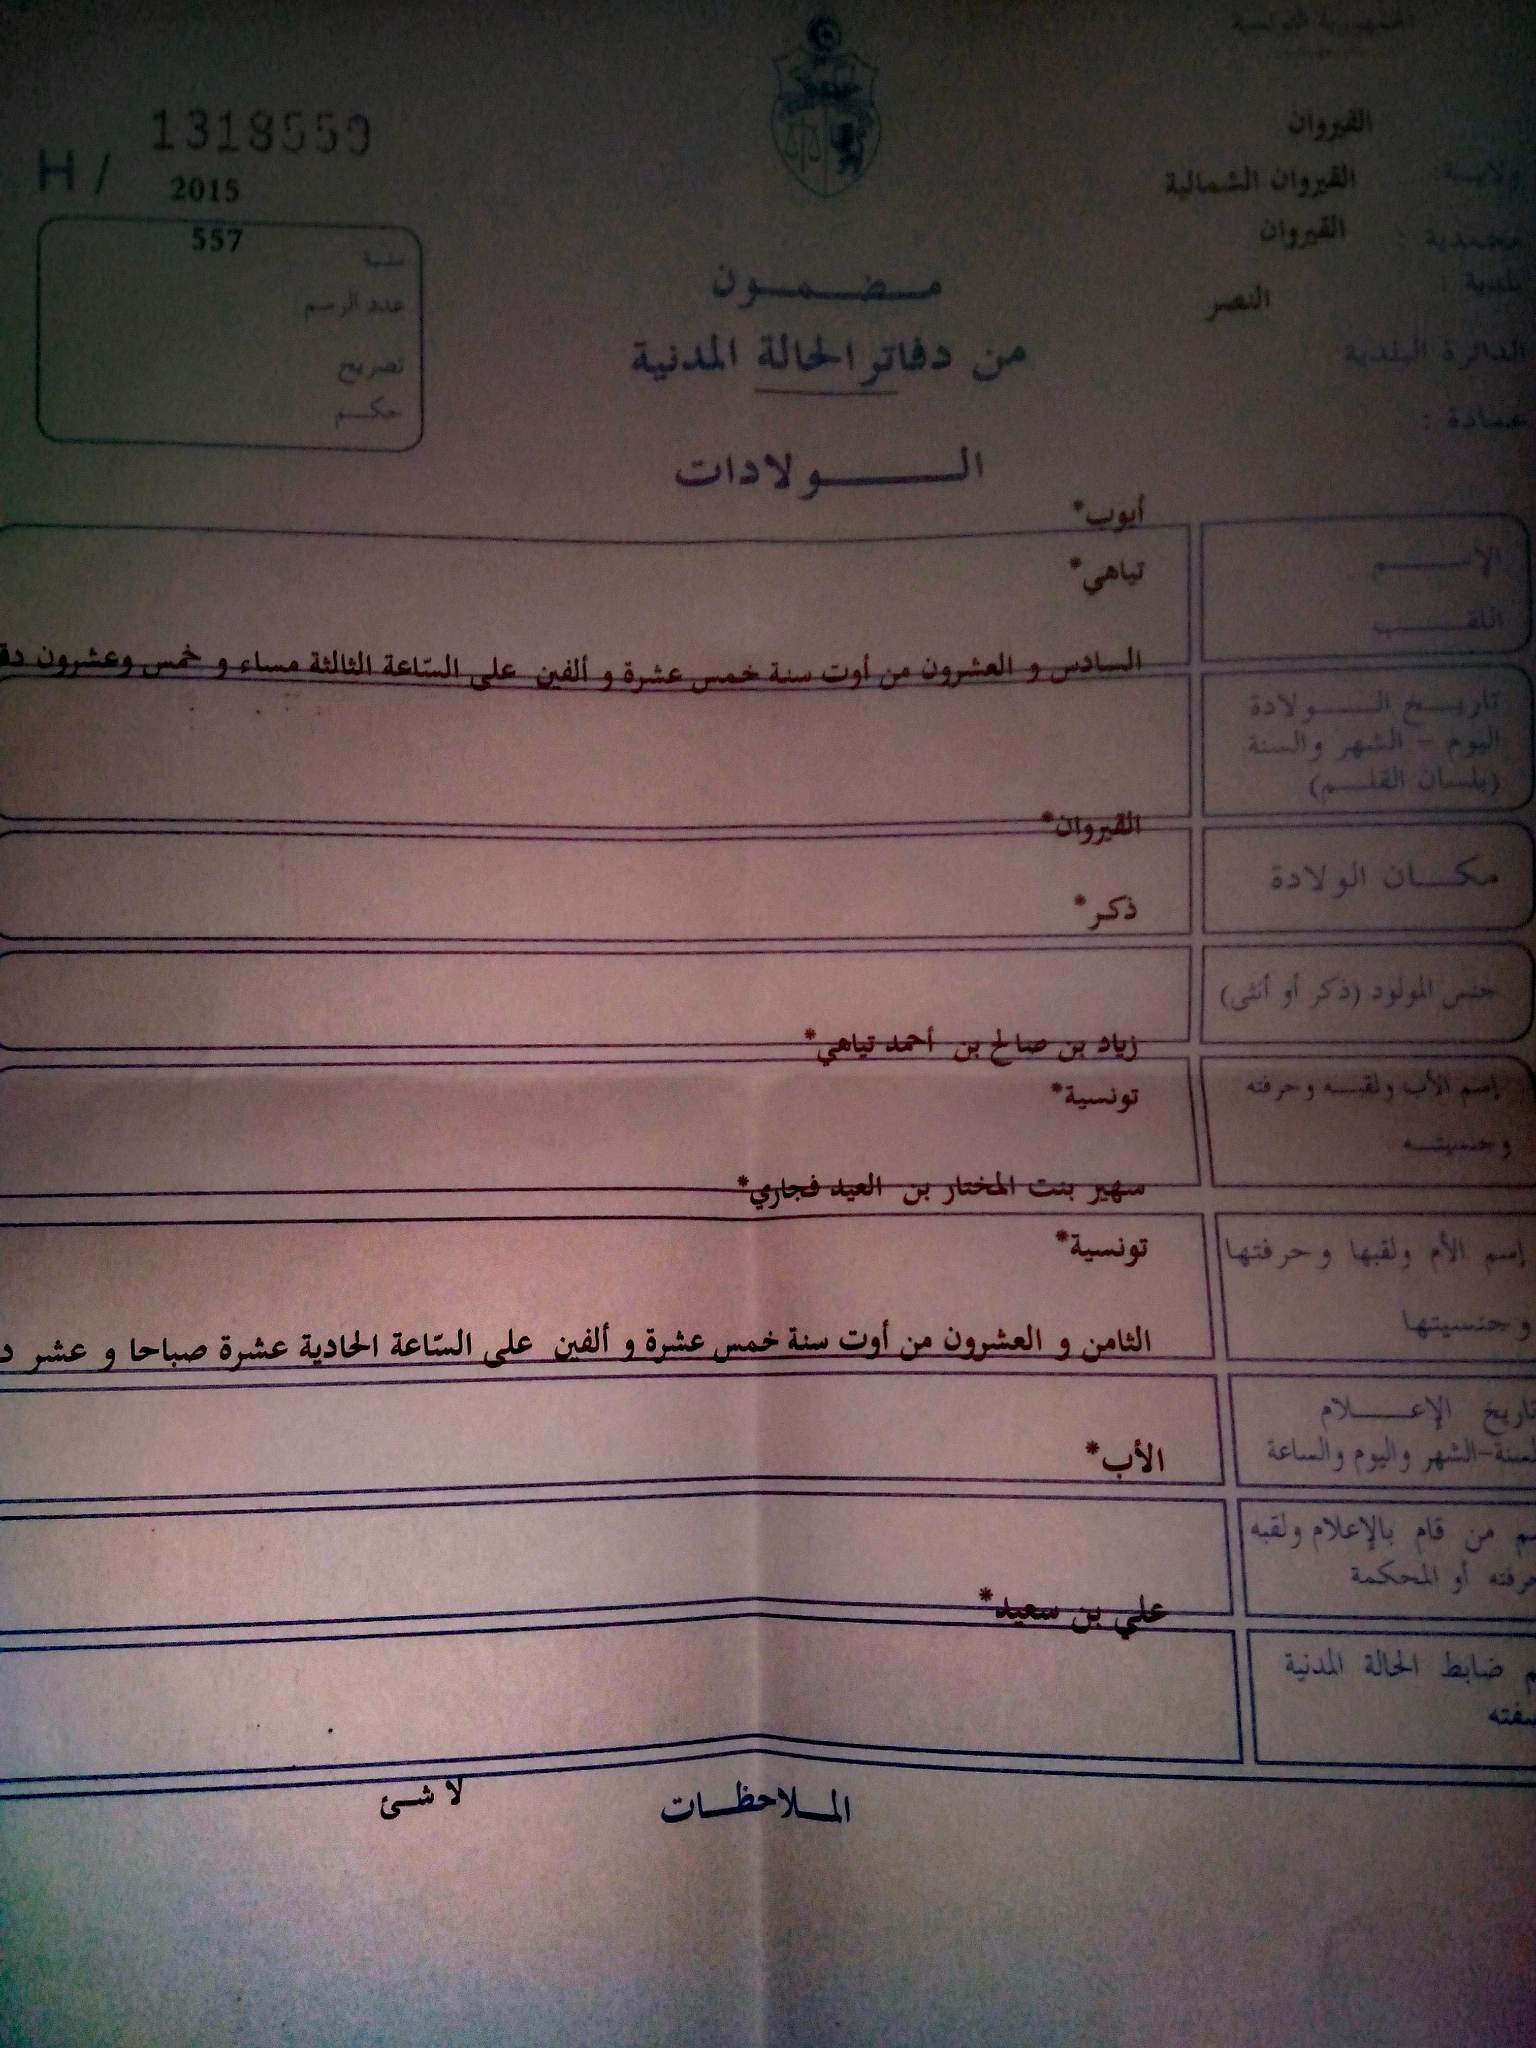 الجمهورية التونسية
H / 1318550
2015
557
سنة
عدد الرسم
تصريح
حكم
القيروان
ولاية:
القيروان الشمالية
معتمدية :
القيروان
بلدية :
النصر
الدائرة البلدية
عمادة :
مضمون
من دفاتر الحالة المدنية
الولادات
أيوب*
الإسم
تياهي*
اللقب
السادس و العشرون من أوت سنة خمس عشرة و ألفين على السّاعة الثالثة مساء و خمس وعشرون
تاريخ الولادة
اليوم - الشهر والسنة
(بلسان القلم)
القيروان*
مكان الولادة
ذكر*
جنس المولود (ذكر أو أنثى)
زياد بن صالح بن أحمد تياهي*
إسم الأب ولقبه وحرفته
تونسية*
وجنسيته
سهير بنت المختار بن العيد فجاري*
تونسية*
إسم الأم ولقبها وحرفتها
وجنسيتها
الثامن و العشرون من أوت سنة خمس عشرة و ألفين على السّاعة الحادية عشرة صباحا و عشر
تاريخ الإعلام
السنة-الشهر واليوم والساعة
الأب*
من قام بالإعلام ولقبه
أو المحكمة
علي بن سعيد*
ضابط الحالة المدنية
الملاحظات لا شئ